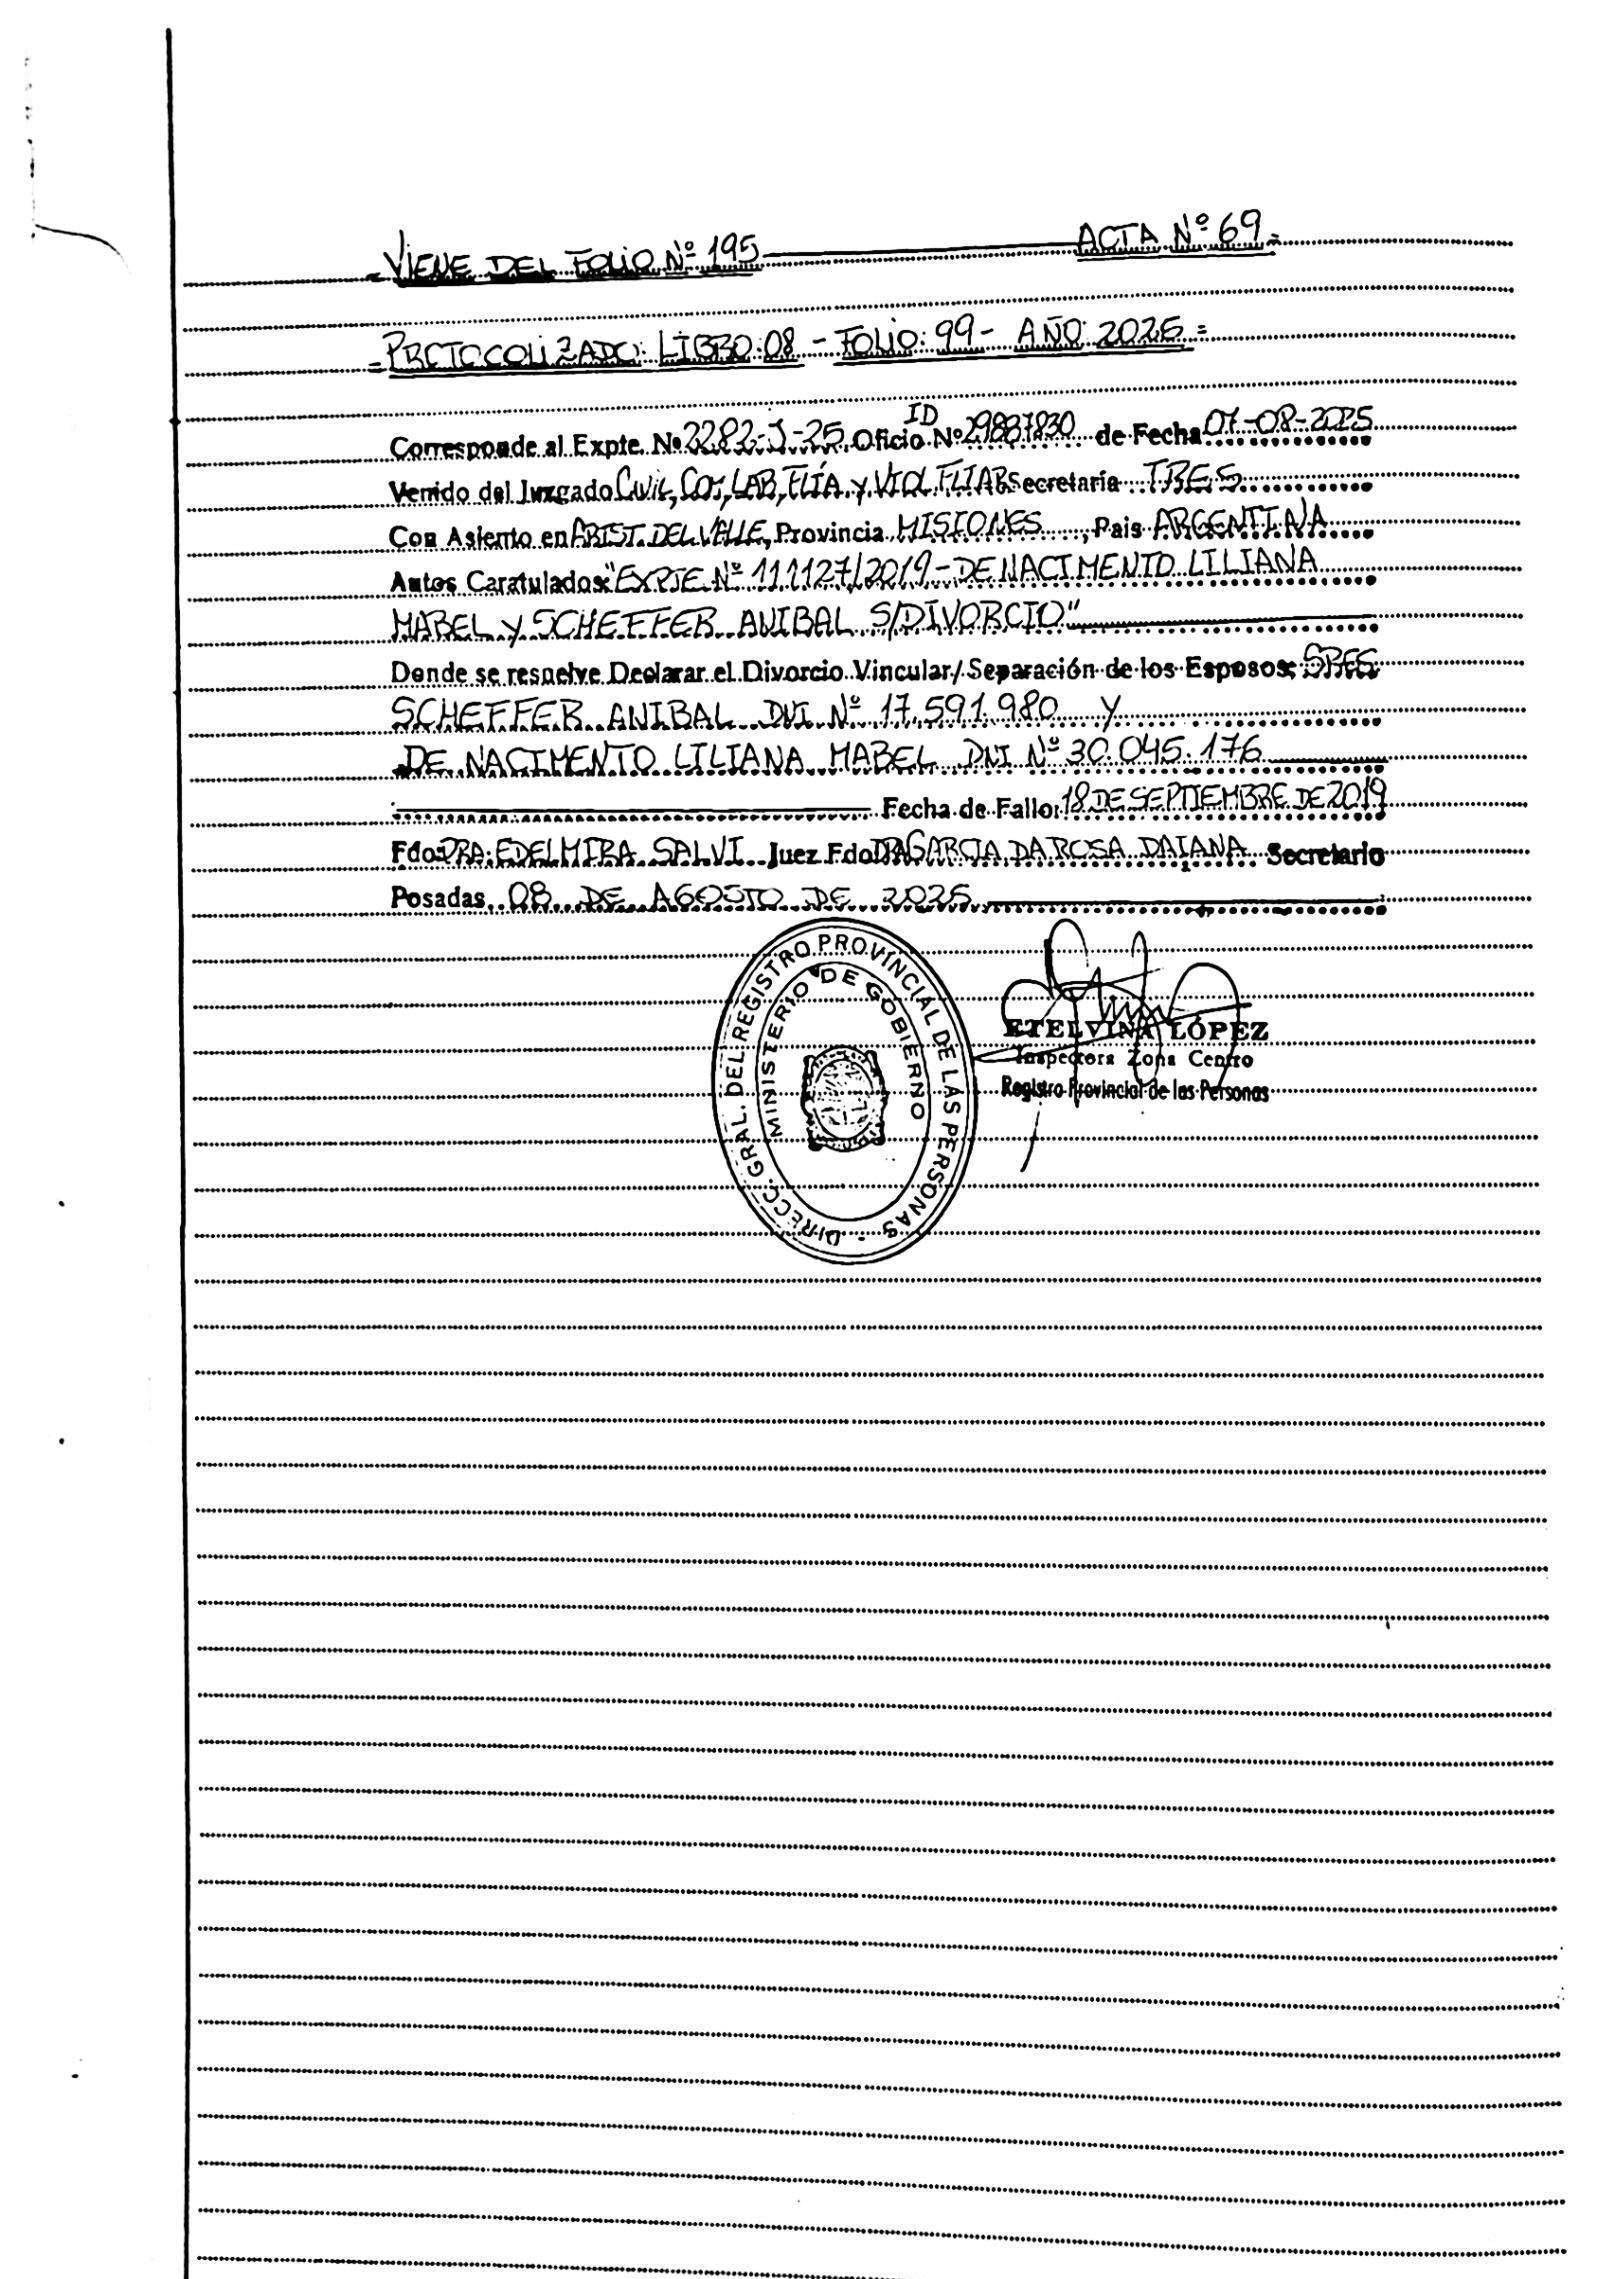 =VIENE DEL FOLIO Nº 195 ACTA Nº 69=
=PROTOCOLIZADO: LIBRO: 08 - FOLIO: 99 - AÑO: 2025=
ID
Corresponde al Expte. Nº 2282-J-25 Oficio Nº 29887830 de Fecha 07-08-2025
Venido del Juzgado Civil, Com, LAB, FLIA y VIOL. FLIAR Secretaría TRES
Con Asiento en ARIST. DEL VALLE, Provincia MISIONES, Pais ARGENTINA
Autos Caratulados: "EXPTE Nº 111127/2019 - DE NACIMENTO LILIANA
MABEL y SCHEFFER ANIBAL S/DIVORCIO"
Donde se resuelve Declarar el Divorcio Vincular/Separación de los Esposos: SRES
SCHEFFER ANIBAL DNI Nº 17.591.980 Y
DE NACIMENTO LILIANA MABEL DNI Nº 30.045.176
Fecha de Fallo: 18 DE SEPTIEMBRE DE 2019
Fdo: DRA. EDELMIRA SALVI Juez Fdo DRA GARCIA DA ROSA DAIANA Secretario
Posadas 08 DE AGOSTO DE 2025
DIRECC. GRAL. DEL REGISTRO PROVINCIAL DE LAS PERSONAS -
MINISTERIO DE GOBIERNO
ETELVINA LÓPEZ
Inspectora Zona Centro
Registro Provincial de las Personas